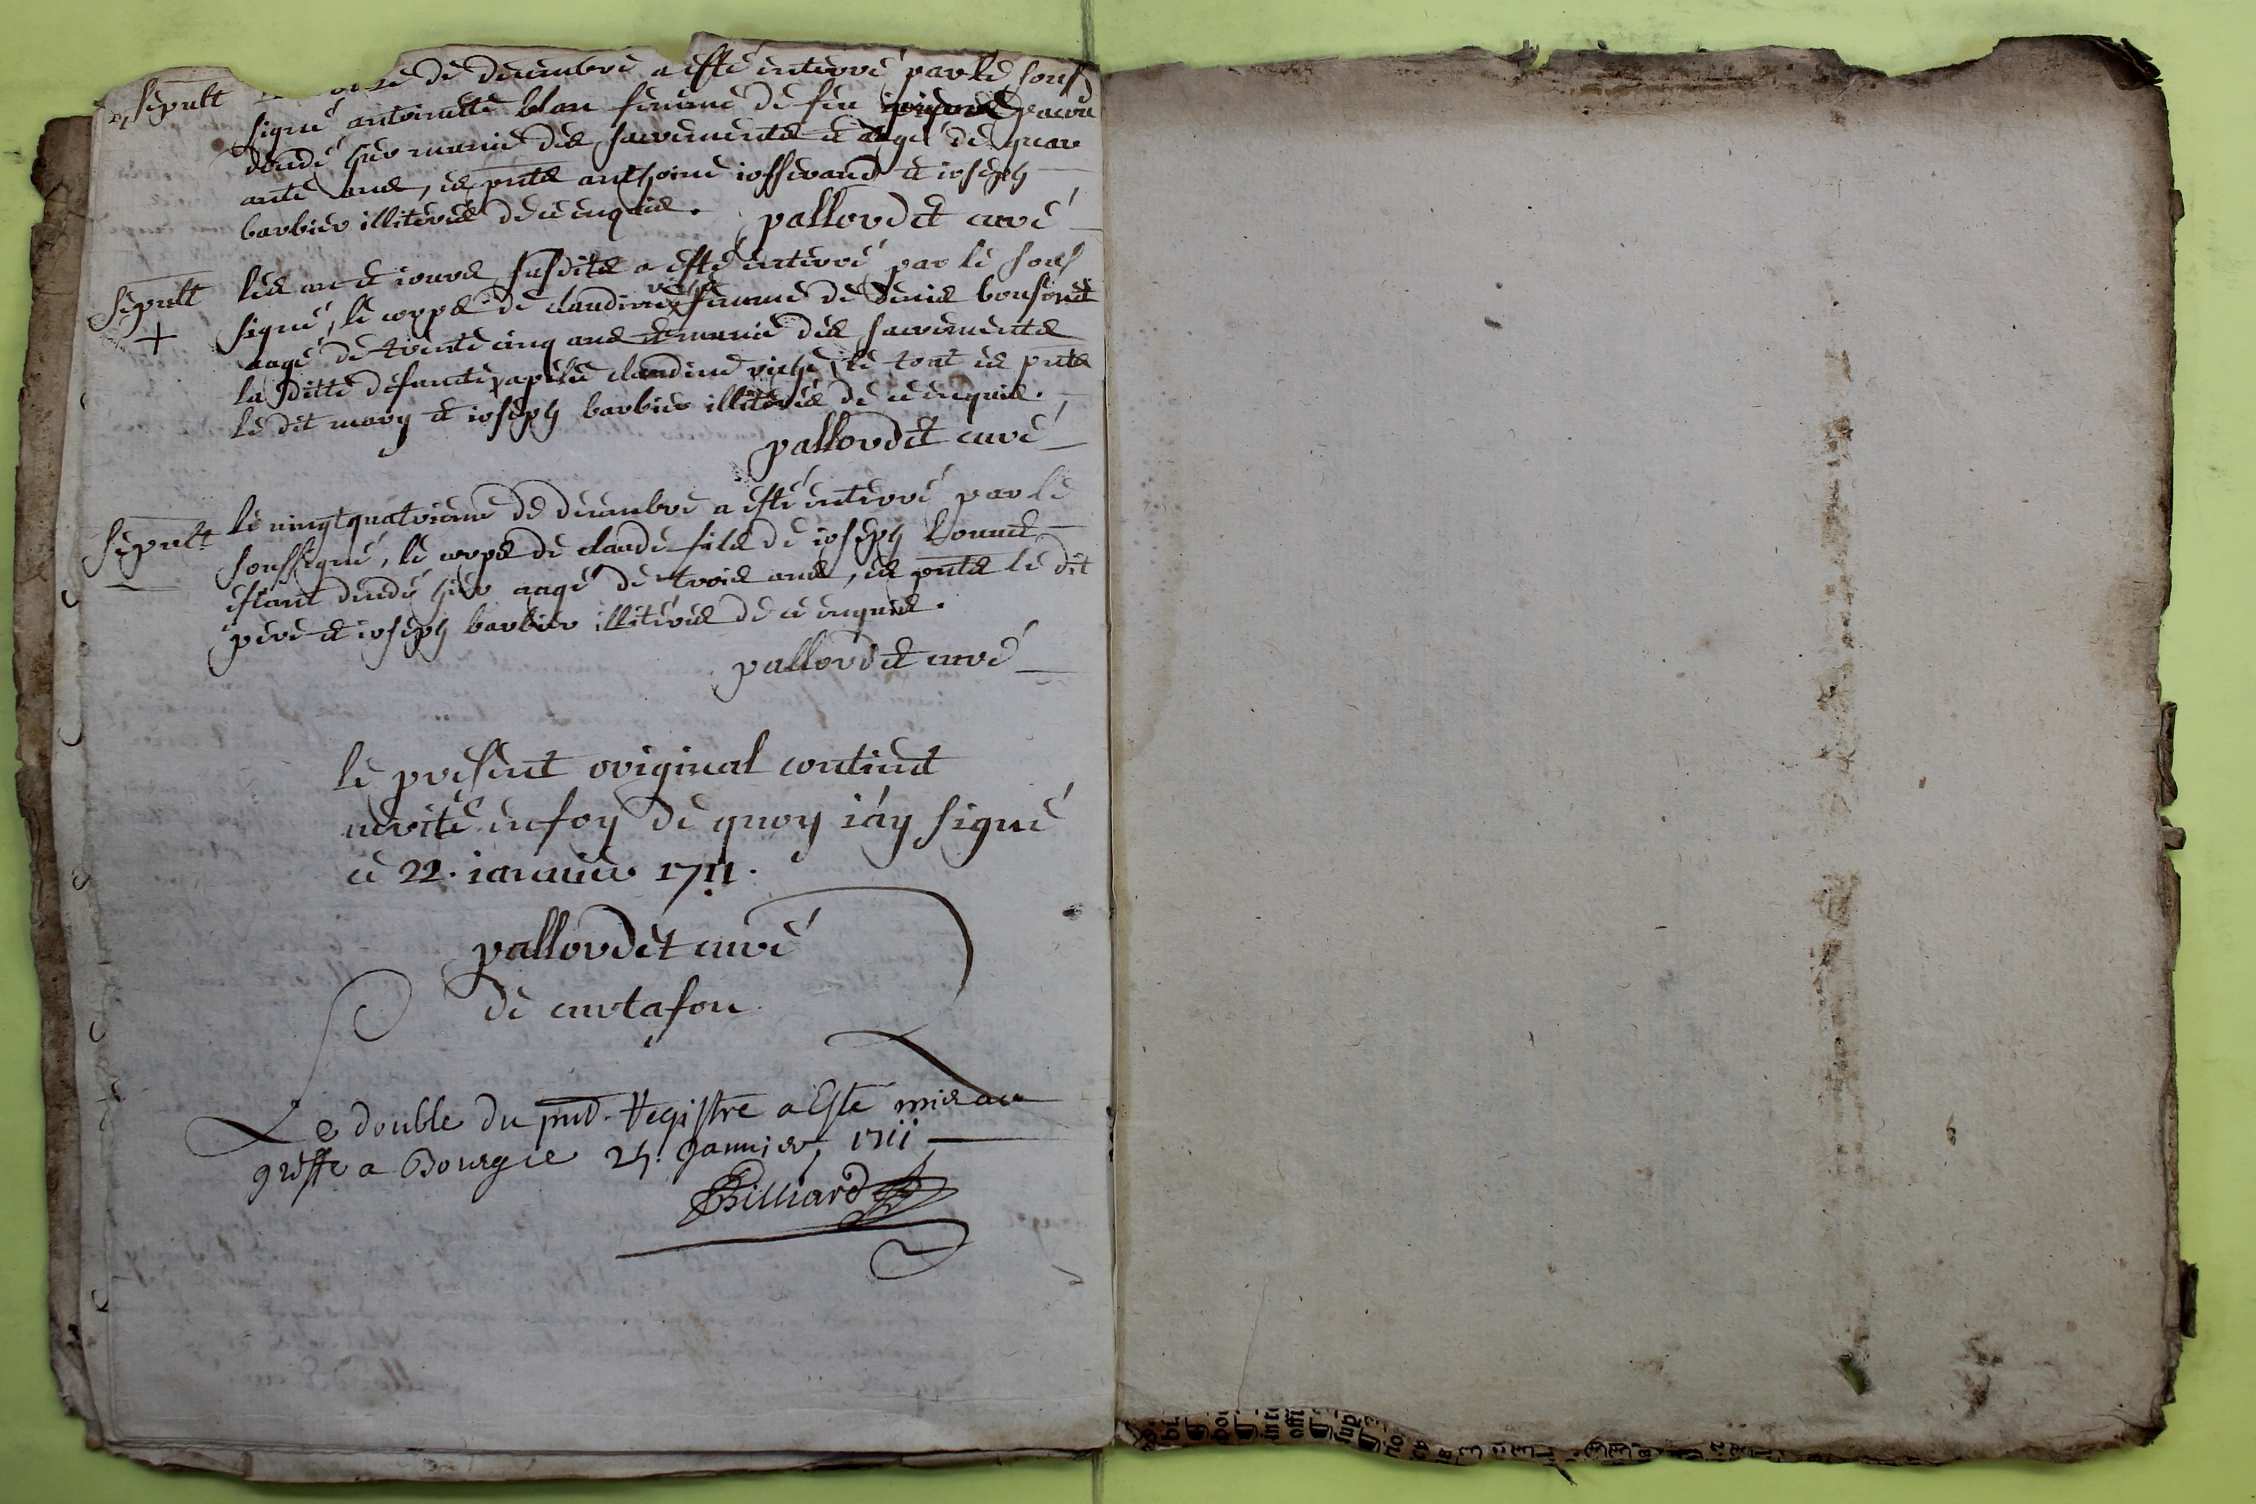 Sepult
de decembre a esté enterré par le sous
signé antoinette blan femme de feu
decedé hier munie des sacrements et aagé de quar
ante ans, es pnts anthoine iosserand et ioseph
barbier illiterés de ce enquis. pallordet curé
Sepult
+
les an et iours susdits a esté enterré par le sous
signé, le corps de claudine femme de denis bonfond
aagé de trente cinq ans et munie des sacrements
la ditte defuncte apelée claudine le tout es pnts
le dit mary et ioseph barbier illiterés de ce enquis.
pallordet curé
Sepult
le vingtquatrieme de decembre a esté enterré par le
soussigné, le corps de claude fils de ioseph
estant decedé hier aagé de trois ans, es pnts le dit
pere et ioseph barbier illiterés de ce enquis.
pallordet curé
le present original contient
verité en foy de quoy i'ay signé
ce 22. ianvier 1711.
pallordet curé
de curtafon
Le double du pnt. Registre a Esté mis au
greffe a Bourg ce 25. Janvier 1711
Billiard